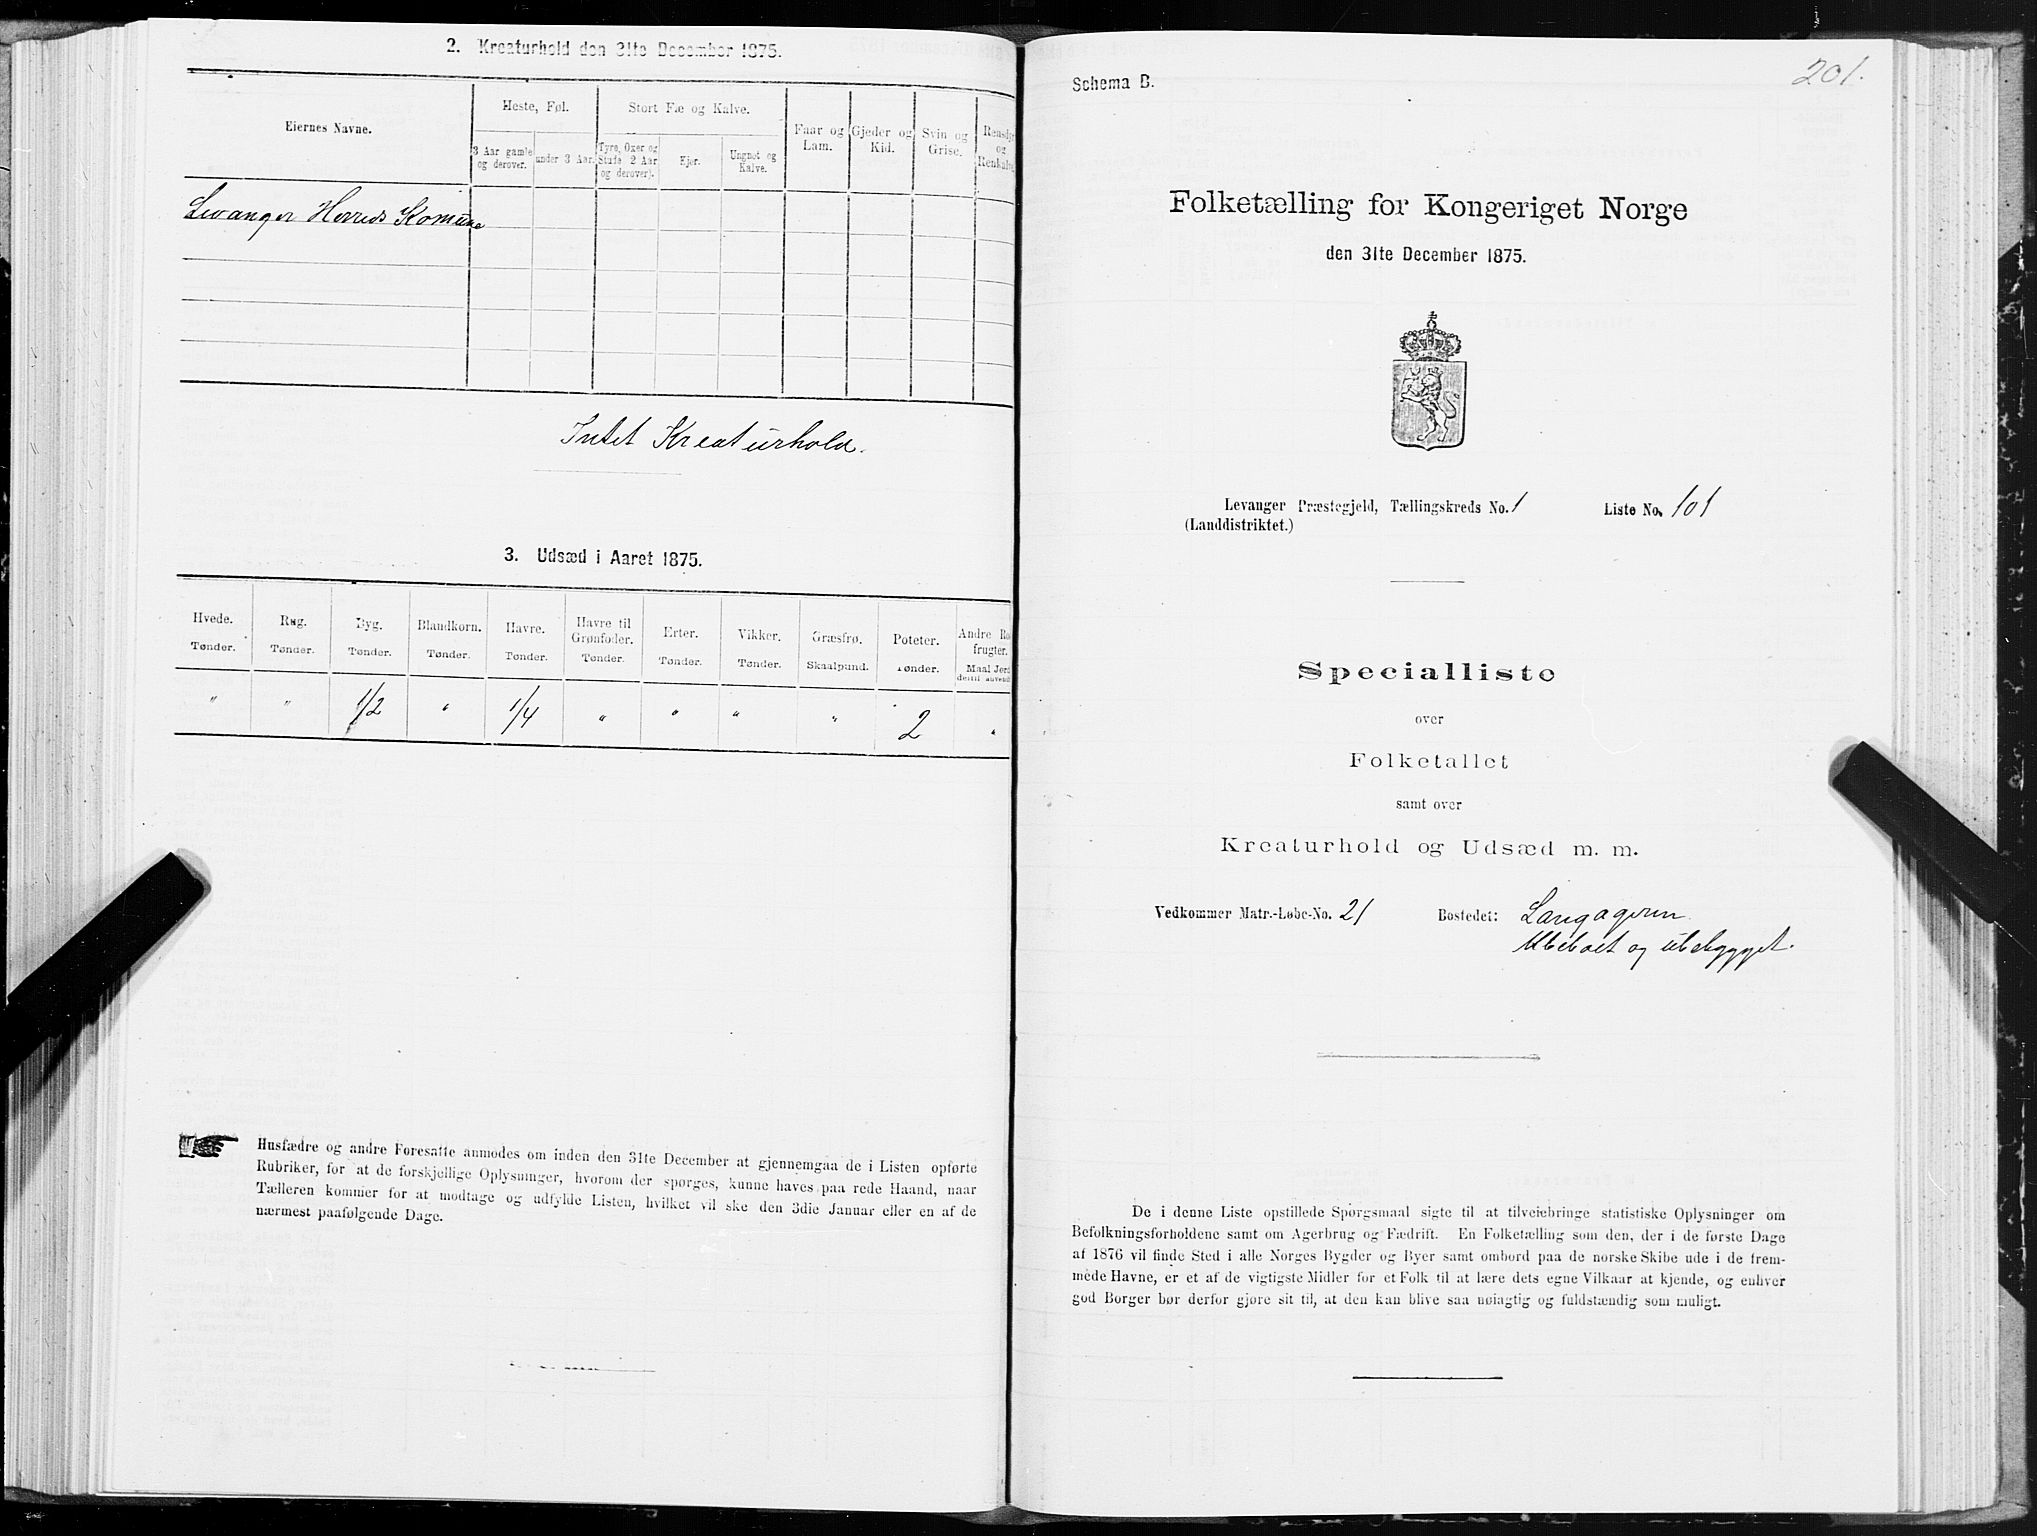 2. Kreaturhold den 31te December 1875.
Eiernes Navne.
Heste, Føl.
Stort Fæ og Kalve.
Faar og Lam.
Gjeder og Kid.
Svin og Grise.
Rensdyr og Renkalve
3 Aar gamle og derover.
under 3 Aar.
Tyre, Oxer og Stude 2 Aar og derover).
Kjør.
Ungnøt og Kalve.
Levanger Herreds Komune
Intet Kreaturhold.
3. Udsæd i Aaret 1875.
Hvede. Rug. Byg. Blandkorn. Havre. Havre til Grønfoder. Erter. Vikker. Græsfrø. Poteter. Andre Ro frugter.
Tønder. Tønder. Tønder. Tønder. Tønder. Tønder. Tønder. Tønder. Skaalpund. Tønder. Maal Jord dertil anvendt
" " 1/2 " 1/4 " " " " 2 "
Husfædre og andre Foresatte anmodes om inden den 31te December at gjennemgaa de i Listen opførte
Rubriker, for at de forskjellige Oplysninger, hvorom der spørges, kunne haves paa rede Haand, naar
Tælleren kommer for at modtage og udfylde Listen, hvilket vil ske den 3die Januar eller en af de
nærmest paafølgende Dage.
201.
Schema B.
Folketælling for Kongeriget Norge
den 31te December 1875.
Levanger Præstegjeld, Tællingskreds No. 1 Liste No. 101
(Landdistriktet.)
Specialliste
over
Folketallet
samt over
Kreaturhold og Udsæd m. m.
Vedkommer Matr.-Løbe-No. 21 Bostedet: Langageren
Ubeboet og ubebygget.
De i denne Liste opstillede Spørgsmaal sigte til at tilveiebringe statistiske Oplysninger om
Befolkningsforholdene samt om Agerbrug og Fædrift. En Folketælling som den, der i de første Dage
af 1876 vil finde Sted i alle Norges Bygder og Byer samt ombord paa de norske Skibe ude i de frem-
mede Havne, er et af de vigtigste Midler for et Folk til at lære dets egne Vilkaar at kjende, og enhver
god Borger bør derfor gjøre sit til, at den kan blive saa nøiagtig og fuldstændig som muligt.